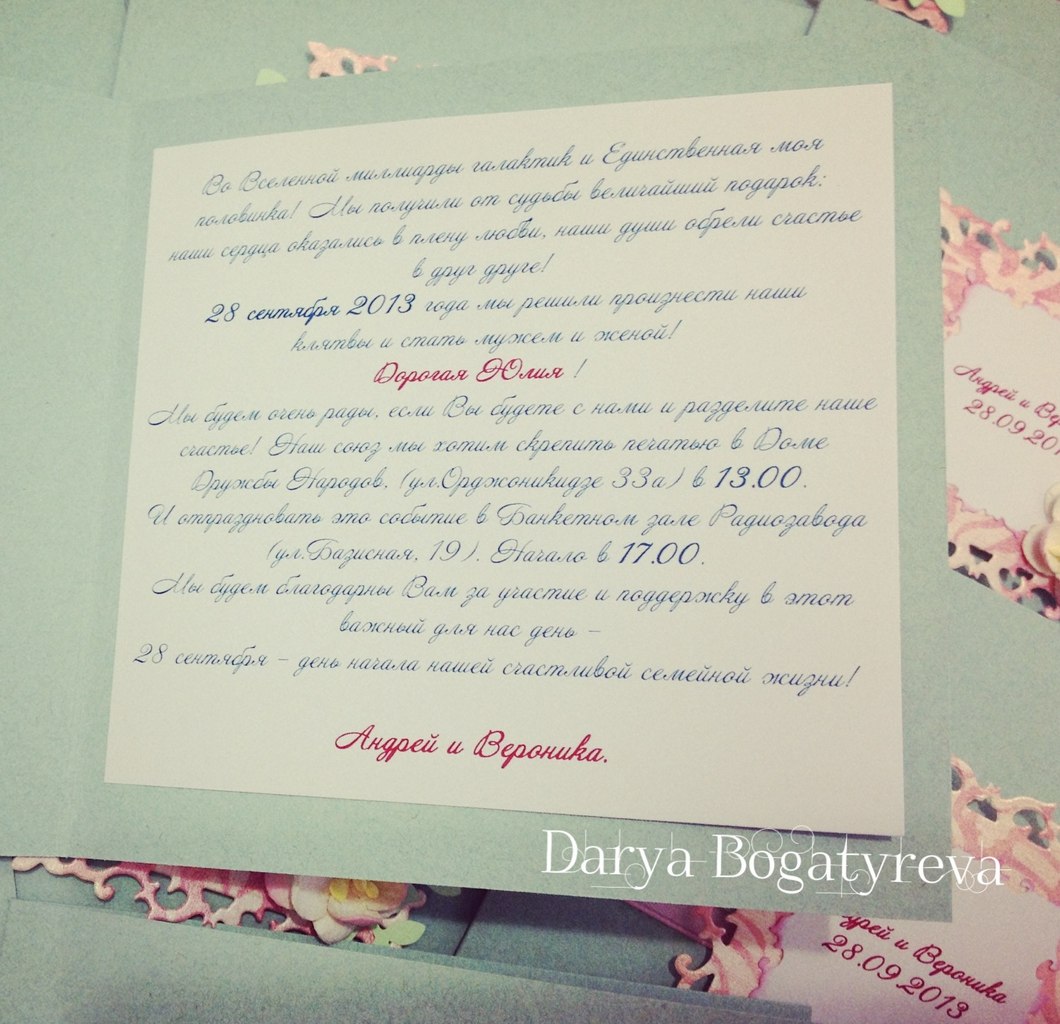 Во Вселенной миллиарды галактик и Единственная моя
половинка! Мы получили от судьбы величайший подарок:
наши сердца оказались в плену любви, наши души обрели счастье
в друг друге!
28 сентября 2013 года мы решили произнести наши
клятвы и стать мужем и женой!
Дорогая Юлия !
Мы будем очень рады, если Вы будете с нами и разделите наше
счастье! Наш союз мы хотим скрепить печатью в Доме
Дружбы Народов, (ул.Орджоникидзе 33а) в 13.00.
И отпраздновать это событие в Банкетном зале Радиозавода
(ул.Базисная, 19). Начало в 17.00.
Мы будем благодарны Вам за участие и поддержку в этот
важный для нас день –
28 сентября – день начала нашей счастливой семейной жизни!
Андрей и Вероника.
Андрей и Ве
28.09.201
Darya Bogatyreva
дрей и Вероника
28.09.2013